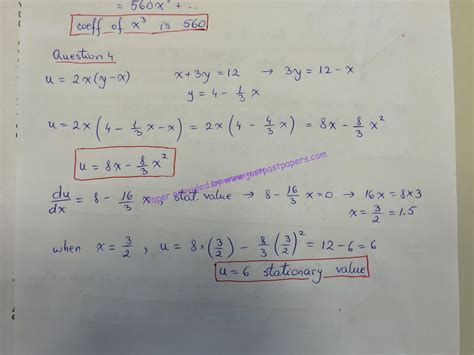 = 560x³ + ..
coeff of x³ is 560
Question 4
u = 2x(y-x)    x+3y = 12 → 3y = 12-x
y = 4 - 1/3 x
u = 2x(4 - 1/3 x - x) = 2x(4 - 4/3 x) = 8x - 8/3 x²
u = 8x - 8/3 x²
du/dx = 8 - 16/3 x stat. value → 8 - 16/3 x = 0 → 16x = 8×3
x = 3/2 = 1.5
when x = 3/2, u = 8×(3/2) - 8/3 (3/2)² = 12-6 = 6
u = 6 stationary value
provided by www.justpastpapers.com